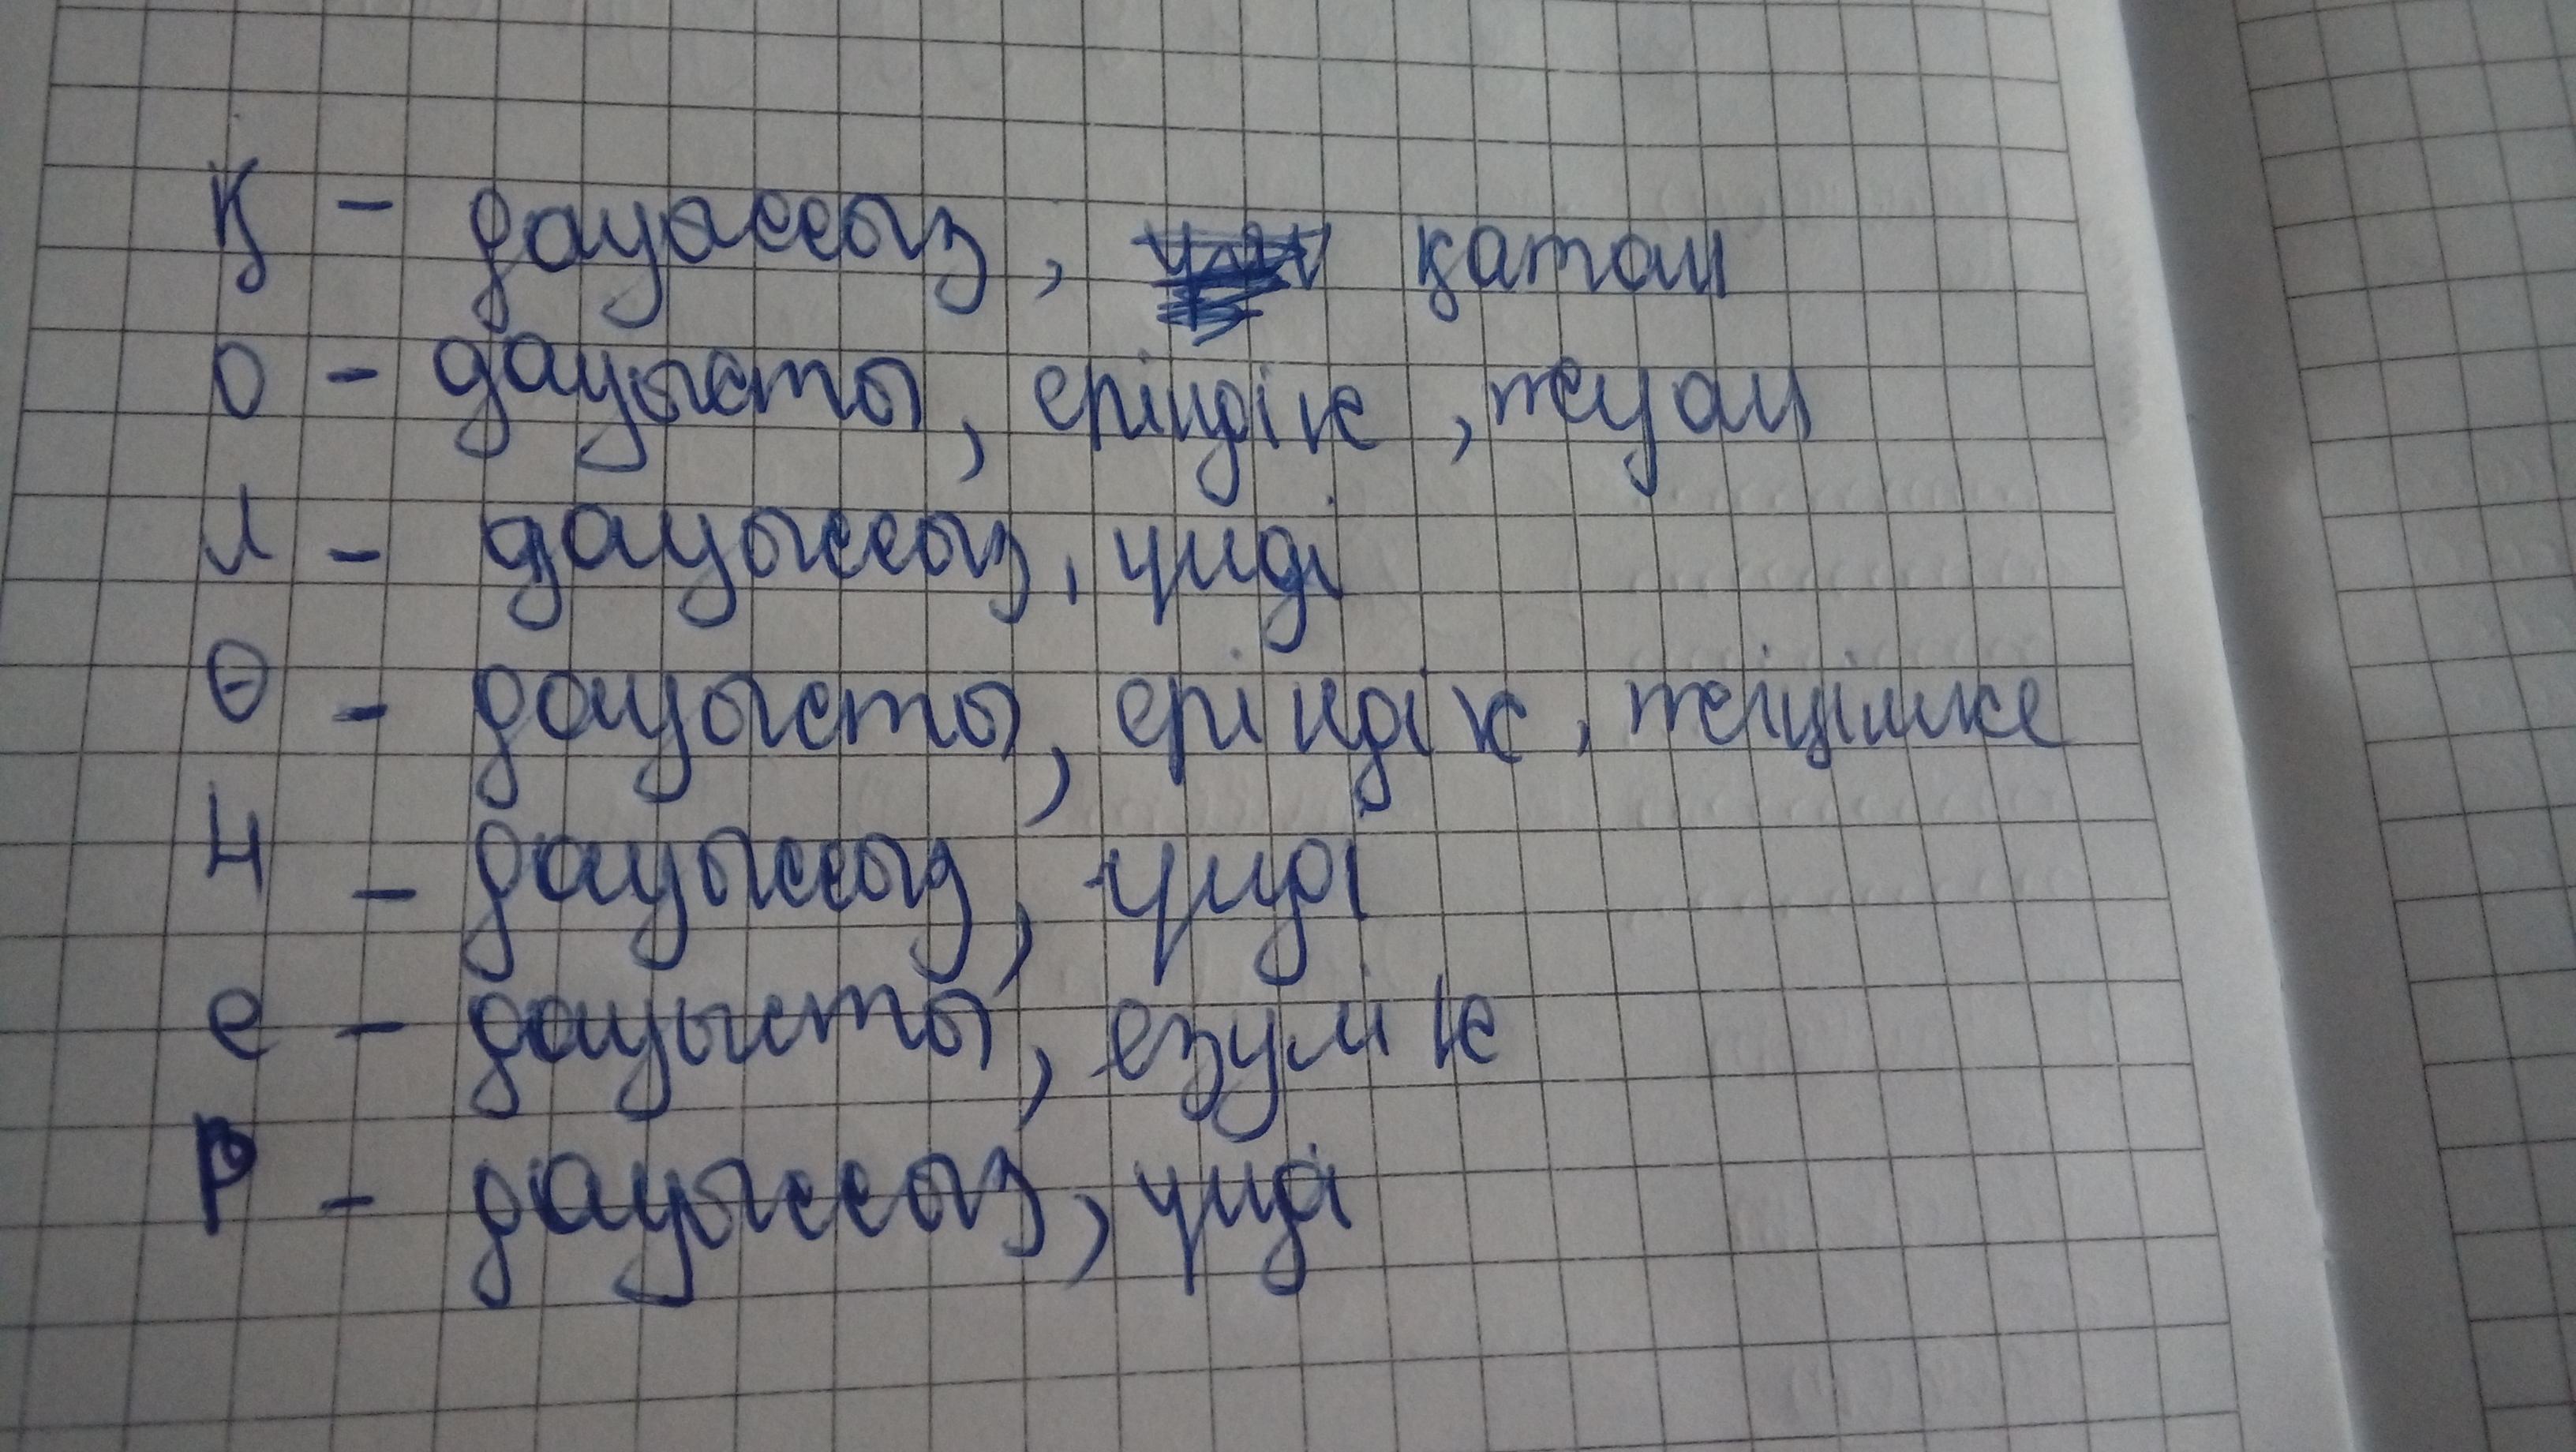 қ - дауыссыз, қатаң
о - дауысты, еріндік, жуан
л - дауыссыз, үнді
ө - дауысты, еріндік, жіңішке
н - дауыссыз, үнді
е - дауысты, езулік
р - дауыссыз, үнді